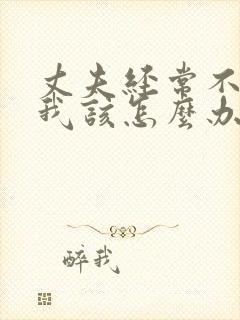 丈夫經常不
我該怎麼办
醉我